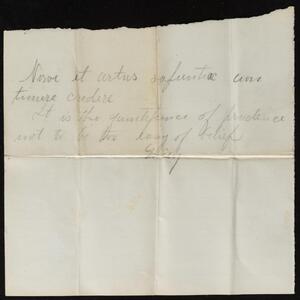 Nervi et artus sapientiæ
timere credere
It is the quintefence of prudence
not to be too easy of belief